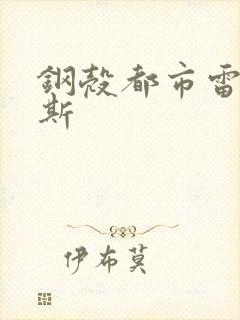 鋼殼都市雷
斯
伊布莫